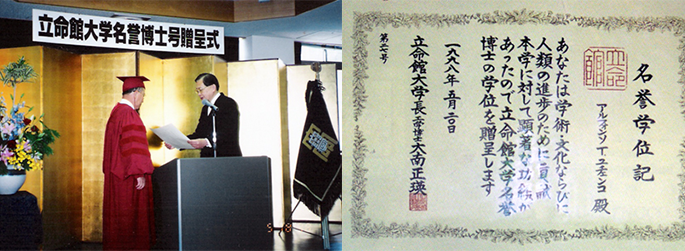 立命館大学名誉博士号贈呈式
名誉学位記
アルフォンソ T ユチェンコ 殿
あなたは学術文化ならびに
人類の進歩のために貢献し
本学に対して顕著な功績が
あったので立命館大学名誉
博士の学位を贈呈します
一九九八年 五月二〇日
立命館大学長 工学博士 大南正瑛